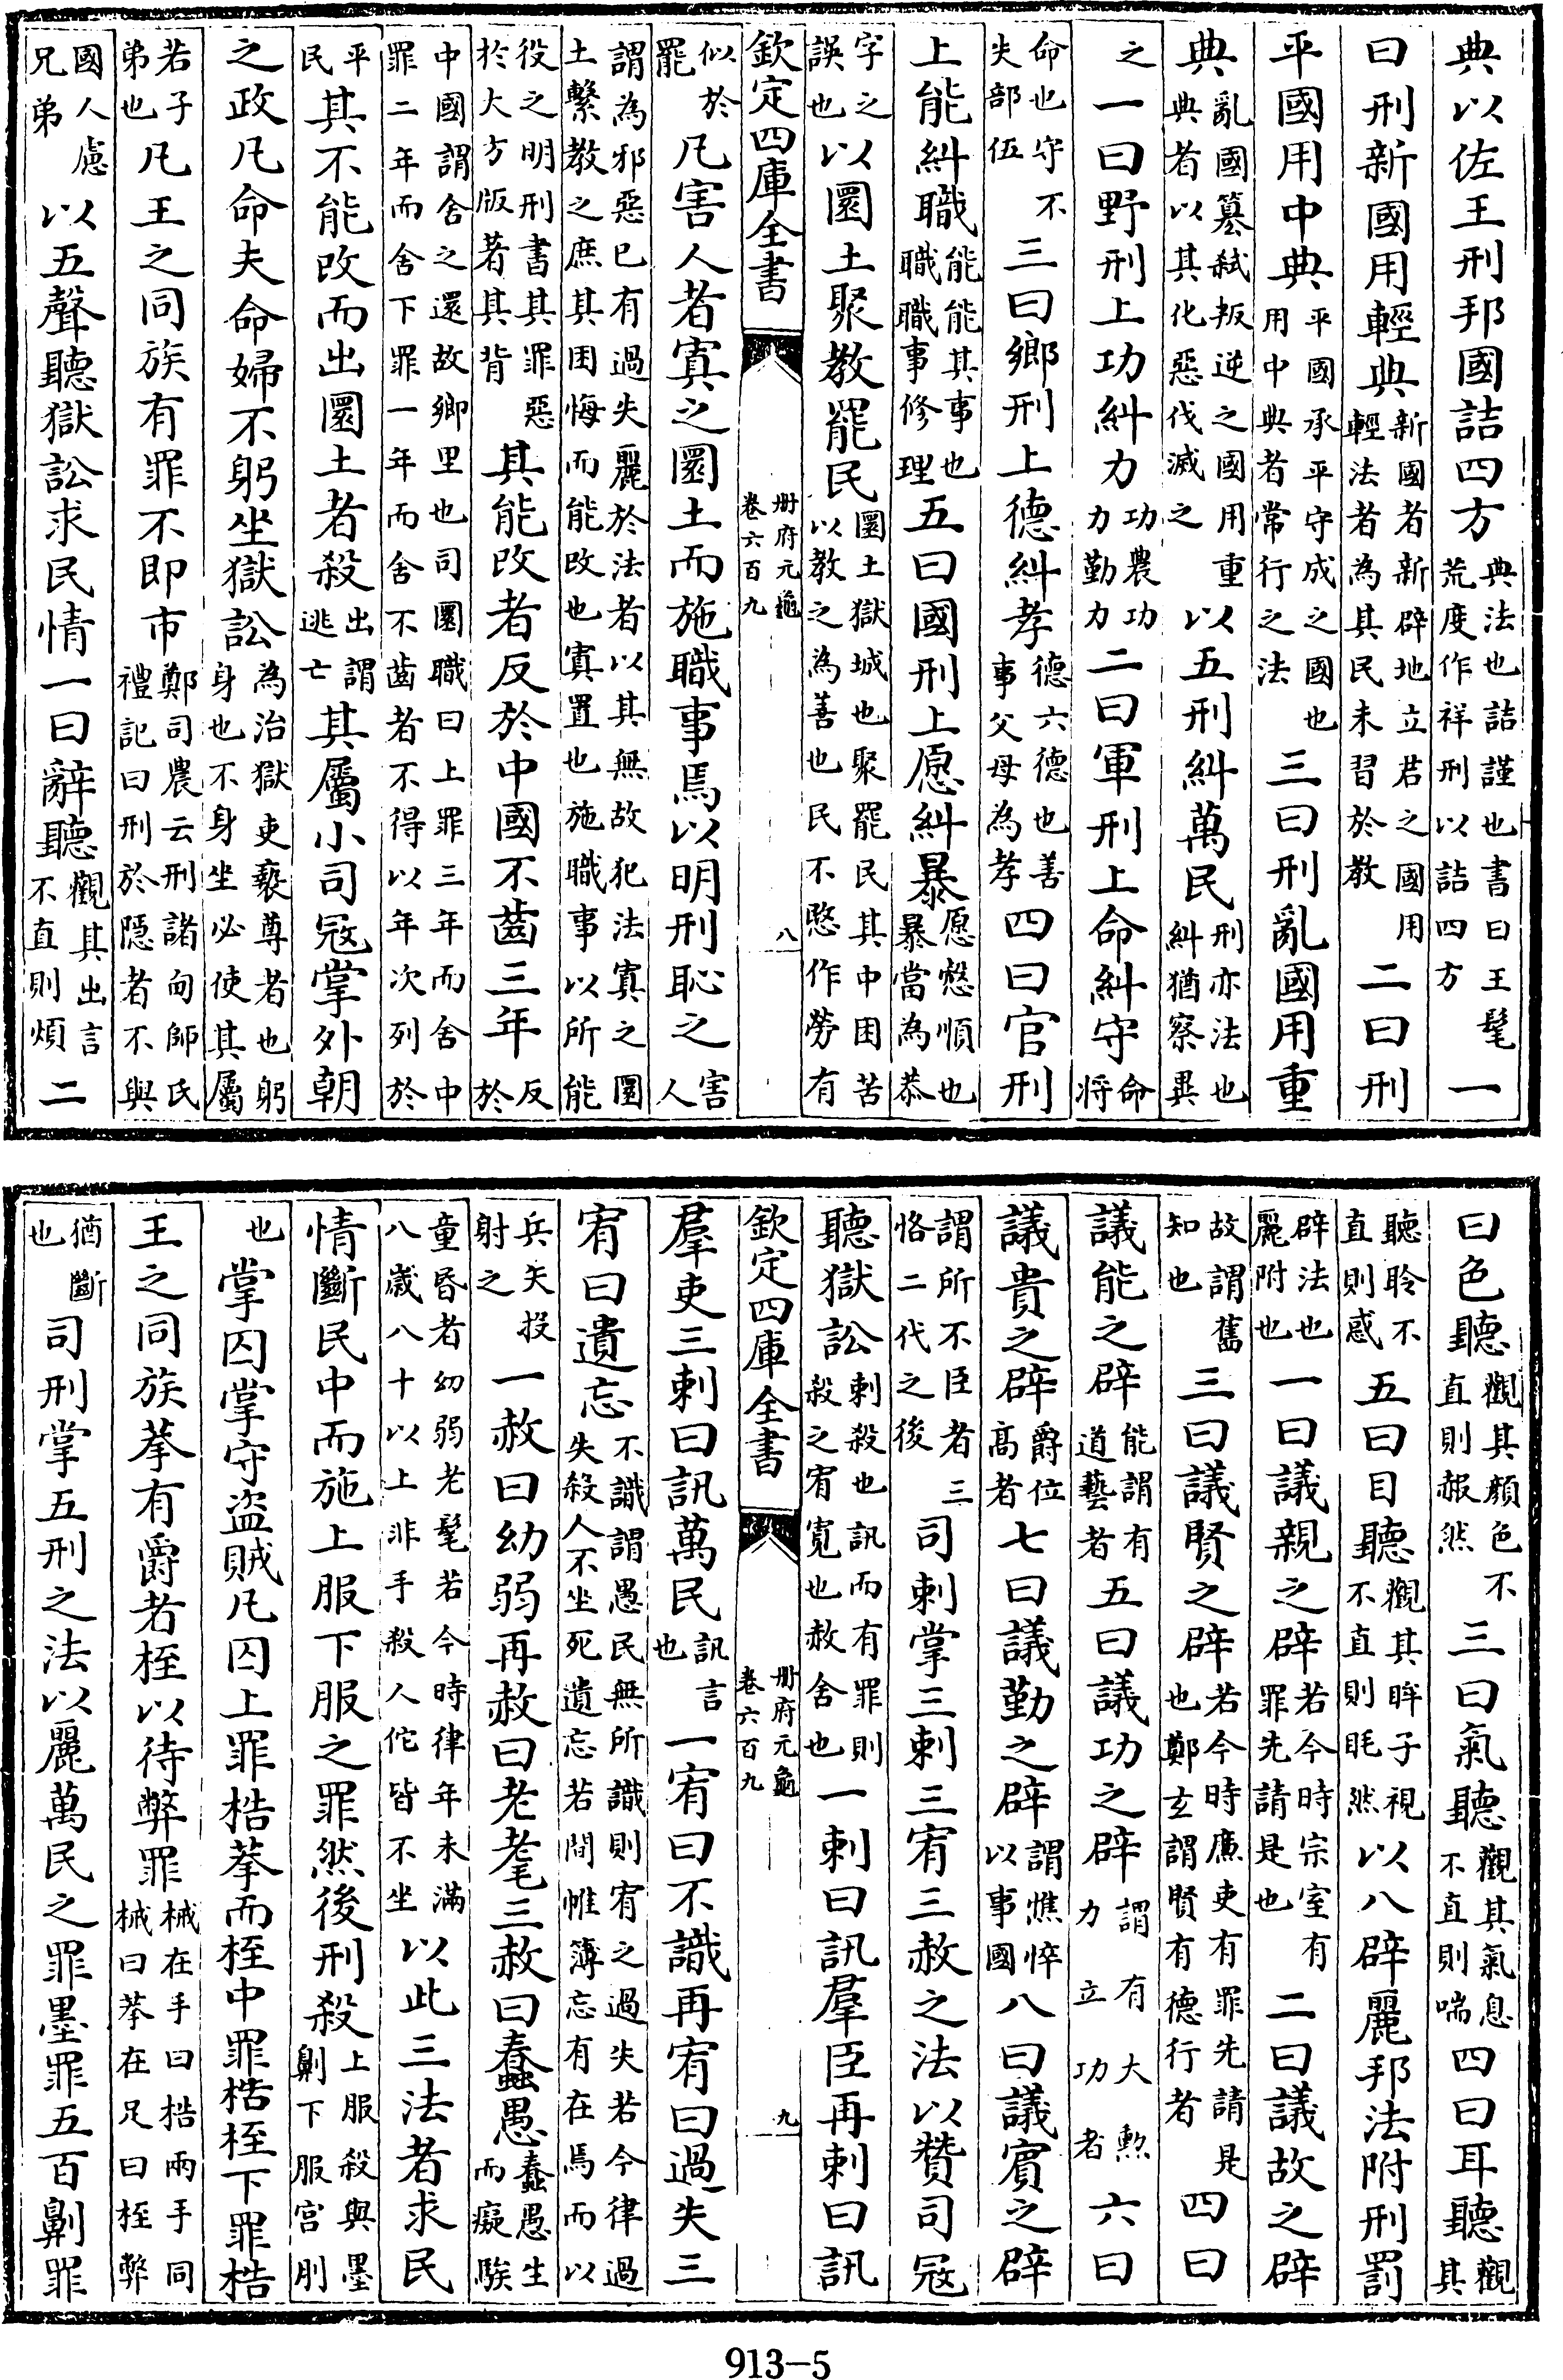 典以佐王刑邦國詰四方典法也詰謹也書曰王髦荒度作祥刑以詰四方一
曰刑新國用輕典新國者新辟地立君之國用輕法者為其民未習於教二曰刑
平國用中典平國承平守成之國也用中典者常行之法三曰刑亂國用重
典亂國簒弑叛逆之國用重典者以其化惡伐滅之以五刑糾萬民刑亦法也糾猶察異
之一曰野刑上功糾力功農功力勤力二曰軍刑上命糾守命將
命也守不失部伍三曰鄉刑上德糾孝德六德也善事父母為孝四曰官刑
上能糾職能能其事也職職事修理五曰國刑上愿糾暴愿慤順也暴當為恭
字之誤也以圜土聚教罷民圜土獄城也聚罷民其中困苦以教之為善也民不愍作勞有
欽定四庫全書 冊府元龜 卷六百九 八
似於罷凡害人者寘之圜土而施職事焉以明刑恥之害人
謂為邪惡已有過失麗於法者以其無故犯法寘之圜土繫教之庶其困悔而能改也寘置也施職事以所能
役之明刑書其罪惡於大方版著其背其能改者反於中國不齒三年反於
中國謂舍之還故鄉里也司圜職曰上罪三年而舍中罪二年而舍下罪一年而舍不齒者不得以年次列於
平民其不能改而出圜土者殺出謂逃亡其屬小司冦掌外朝
之政凡命夫命婦不躬坐獄訟為治獄吏褻尊者也躬身也不身坐必使其屬
若子弟也凡王之同族有罪不即市鄭司農云刑諸甸師氏禮記曰刑於隱者不與
國人慮兄弟以五聲聽獄訟求民情一曰辭聽觀其出言不直則煩二
曰色聽觀其顔色不直則赧然三曰氣聽觀其氣息不直則喘四曰耳聽觀其
聽聆不直則惑五曰目聽觀其眸子視不直則眊然以八辟麗邦法附刑罰
辟法也麗附也一曰議親之辟若今時宗室有罪先請是也二曰議故之辟
故謂舊知也三曰議賢之辟若今時亷吏有罪先請是也鄭玄謂賢有德行者四曰
議能之辟能謂有道藝者五曰議功之辟謂有大勲力立功者六曰
議貴之辟爵位髙者七曰議勤之辟謂憔悴以事國八曰議賓之辟
謂所不臣者三恪二代之後司刺掌三刺三宥三赦之法以贊司冦
聽獄訟刺殺也訊而有罪則殺之宥寛也赦舍也一刺曰訊羣臣再刺曰訊
欽定四庫全書 冊府元龜 卷六百九 九
羣吏三刺曰訊萬民訊言也一宥曰不識再宥曰過失三
宥曰遺忘不識謂愚民無所識則宥之過失若今律過失殺人不坐死遺忘若間帷簿忘有在焉而以
兵矢投射之一赦曰幼弱再赦曰老耄三赦曰蠢愚蠢愚生而癡騃
童昏者幼弱老髦若今時律年未滿八歲八十以上非手殺人佗皆不坐以此三法者求民
情斷民中而施上服下服之罪然後刑殺上服殺與墨劓下服宫刖
也掌囚掌守盜賊凡囚上罪梏拲而桎中罪桎梏下罪梏
王之同族拲有爵者桎以待弊罪械在手曰梏兩手同械曰拲在足曰桎弊
猶斷也司刑掌五刑之法以麗萬民之罪墨罪五百劓罪
913-5